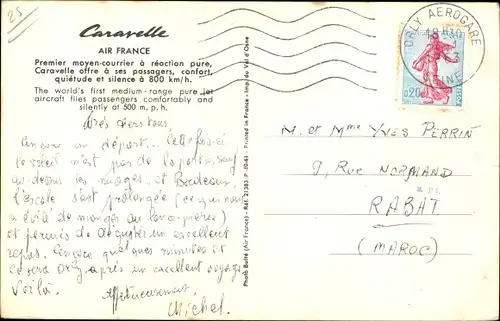 25
Caravelle
AIR FRANCE
Premier moyen-courrier à réaction pure,
Caravelle offre à ses passagers, confort,
quiétude et silence à 800 km/h.
The world's first medium-range pure jet
aircraft flies passengers comfortably and
silently at 500 m. p. h.
Très chers tous
Encore un départ... Cette fois-ci
le soleil n'est pas de la partie, sauf
au-dessus des nuages, et Bordeaux,
l'escale s'est prolongée (ce qui nous
a évité de manger au
et permis de déguster un excellent
repas. Encore quelques minutes et
ce sera Orly après un excellent voyage
Voilà.
Affectueusement,
Michel.
Photo Baité (Air France) - Réf. 21383/P 10-61 - Printed in France - Imp. du Val d'Osne
ORLY AEROGARE
0,20
M. et Mme YVES PERRIN
9, RUE NORMAND
RABAT
(MAROC)